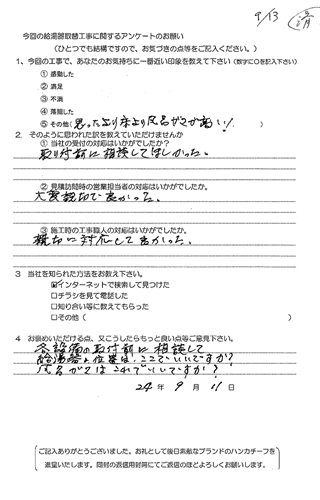 9/13 済
今回の給湯器取替工事に関するアンケートのお願い
(ひとつでも結構ですので、お気づきの点等をご記入ください。)
1、今回の工事で、あなたのお気持ちに一番近い印象を教えて下さい(数字に○を記入下さい)
① 感動した
② 満足
③ 不満
④ 落胆した
⑤ その他(思ったより床より風呂がさが高い!)
2. そのように思われた訳を教えていただけませんか
① 当社の受付の対応はいかがでしたか?
取り付前に相談して ほしかった。
② 見積訪問時の営業担当者の対応はいかがでしたか。
大変親切で良かった。
③ 施工時の工事職人の対応はいかがでしたか?
親切に対応して良かった。
3 当社を知られた方法をお教え下さい。
☑インターネットで検索して見つけた
□チラシを見て電話した
□知り合い等に教えてもらった
□その他( )
4 お褒めいただける点、又こうしたらもっと良い点等ご意見下さい。
各設備の取付前に相談して
給湯器の位置は、ここでいいですか?
風呂がさはこれでいいですか?
24年 9月 11日
ご記入ありがとうございました。お礼として後日素敵なブランドのハンカチーフを
進呈いたします。同封の返信用封筒にてご返信のほどよろしくお願いします。